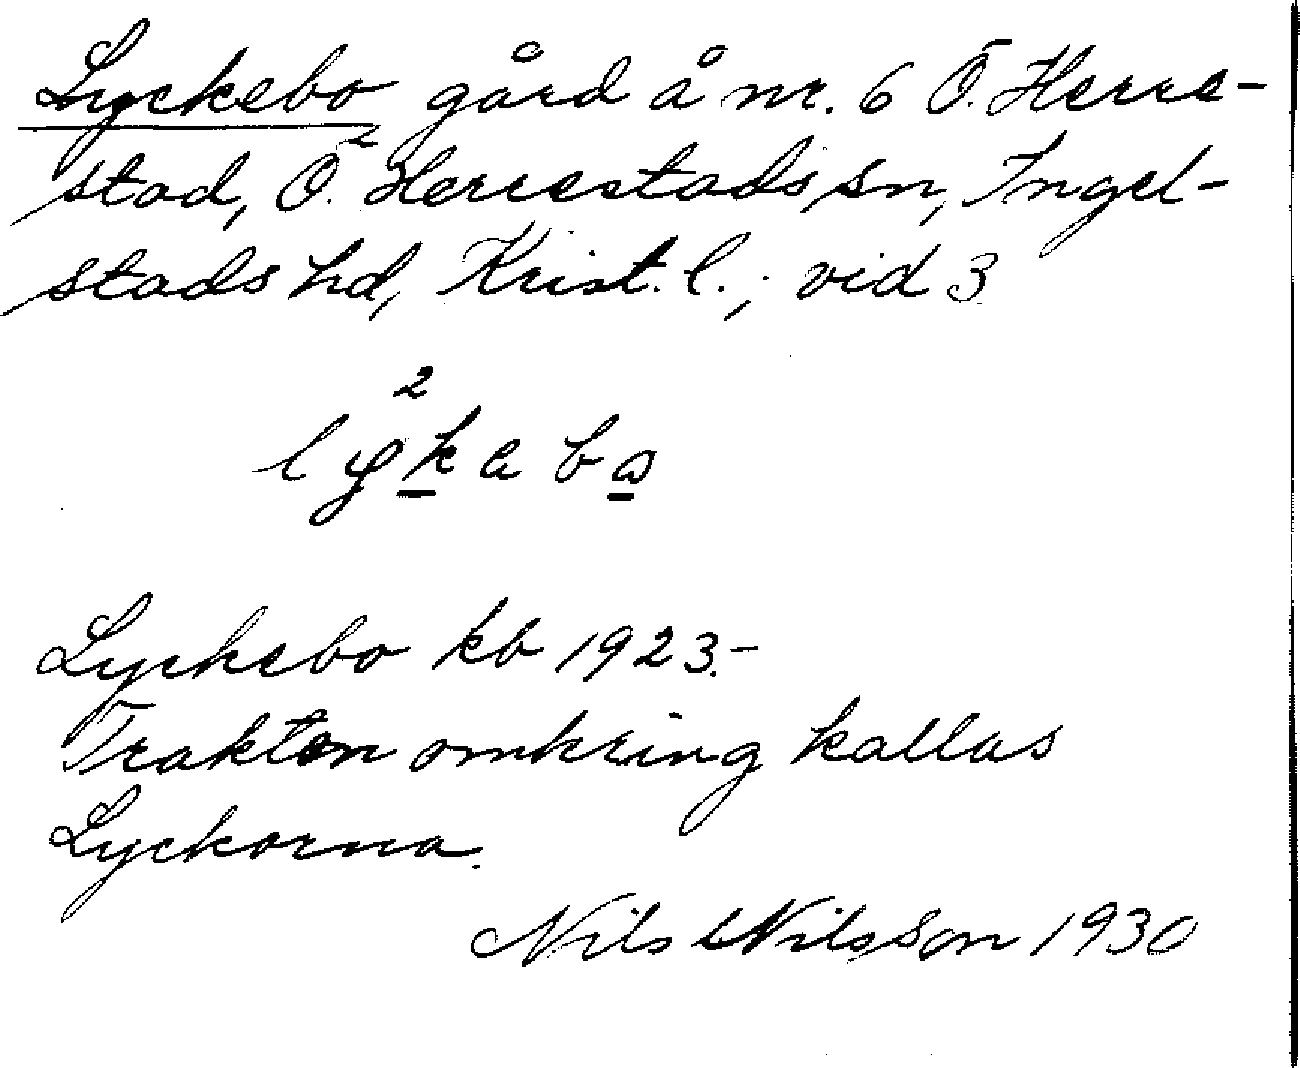 Lyckebo gård å nr. 6 Ö. Herre-
stad, Ö. Herrestads sn, Ingel-
stads hd, Krist. l.; vid 3
2
lykabo
Lyckebo kb 1923.-
Trakten omkring kallas
Lyckorna.
Nils Nilsson 1930